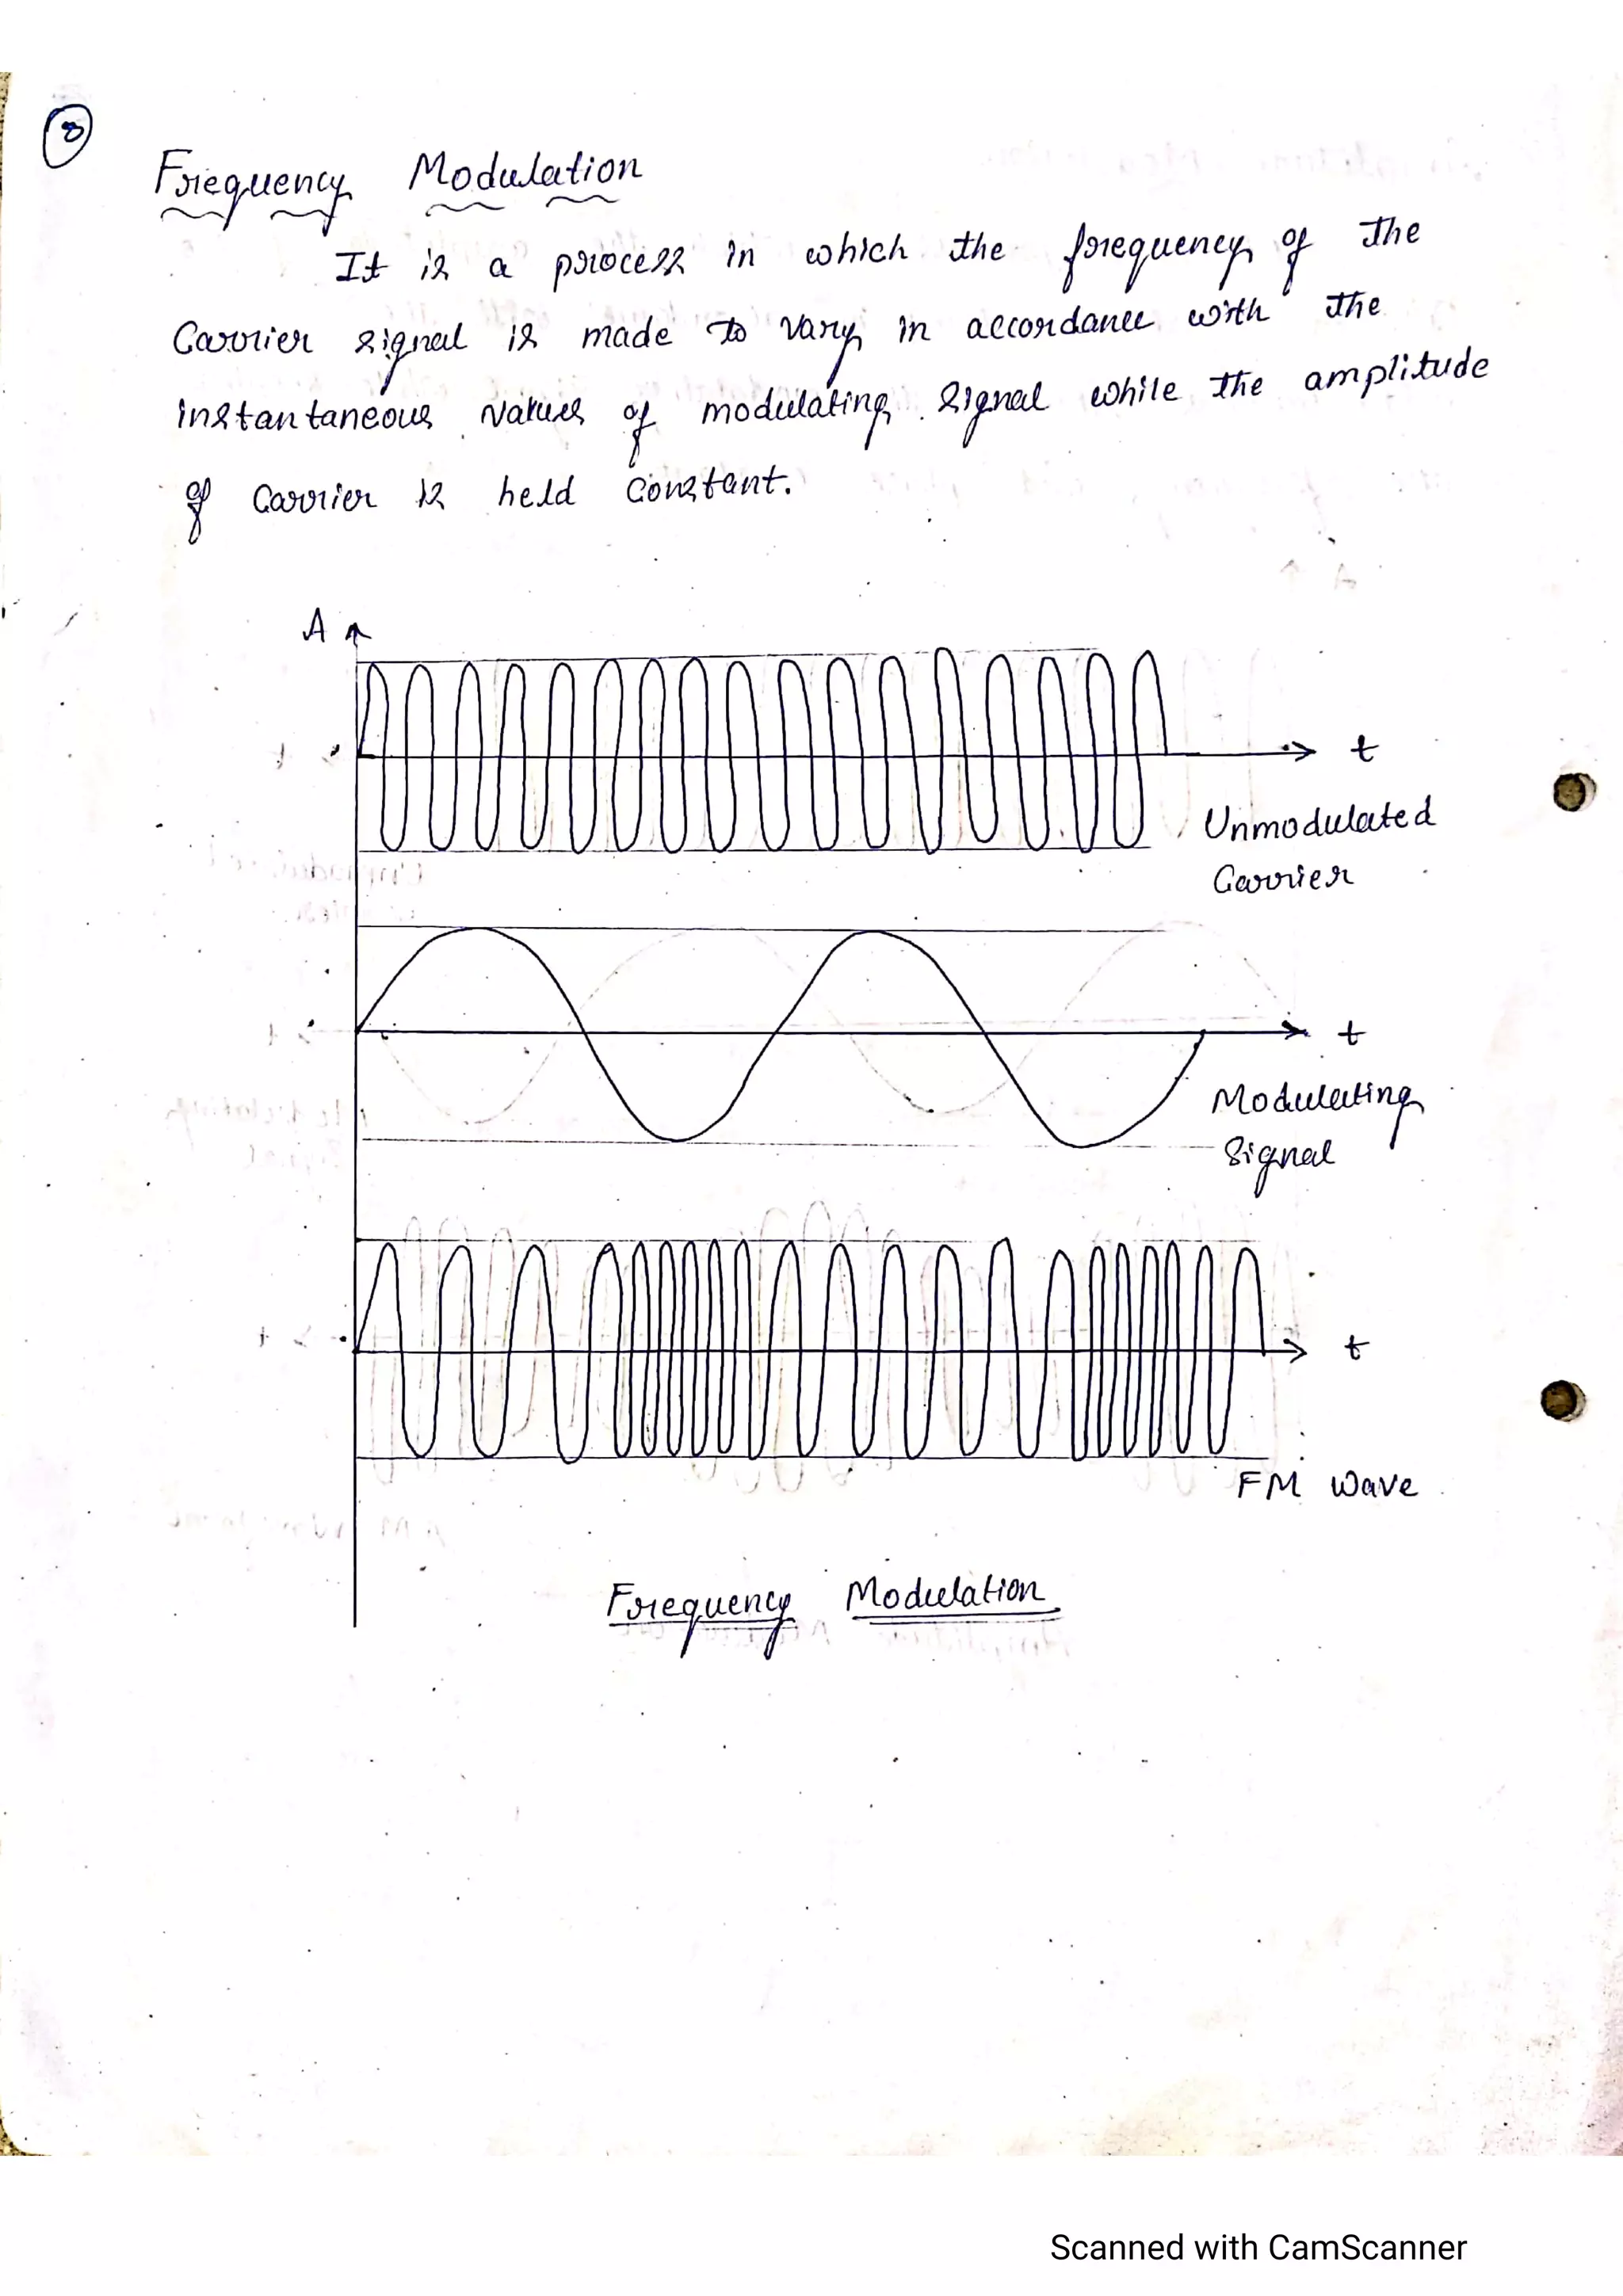 8
Frequency Modulation
It is a process in which the frequency of the
Carrier signal is made to vary in accordance with the
instantaneous values of modulating signal while the amplitude
of Carrier is held constant.
A
t
Unmodulated
Carrier
t
Modulating
Signal
t
FM Wave
Frequency Modulation
Scanned with CamScanner